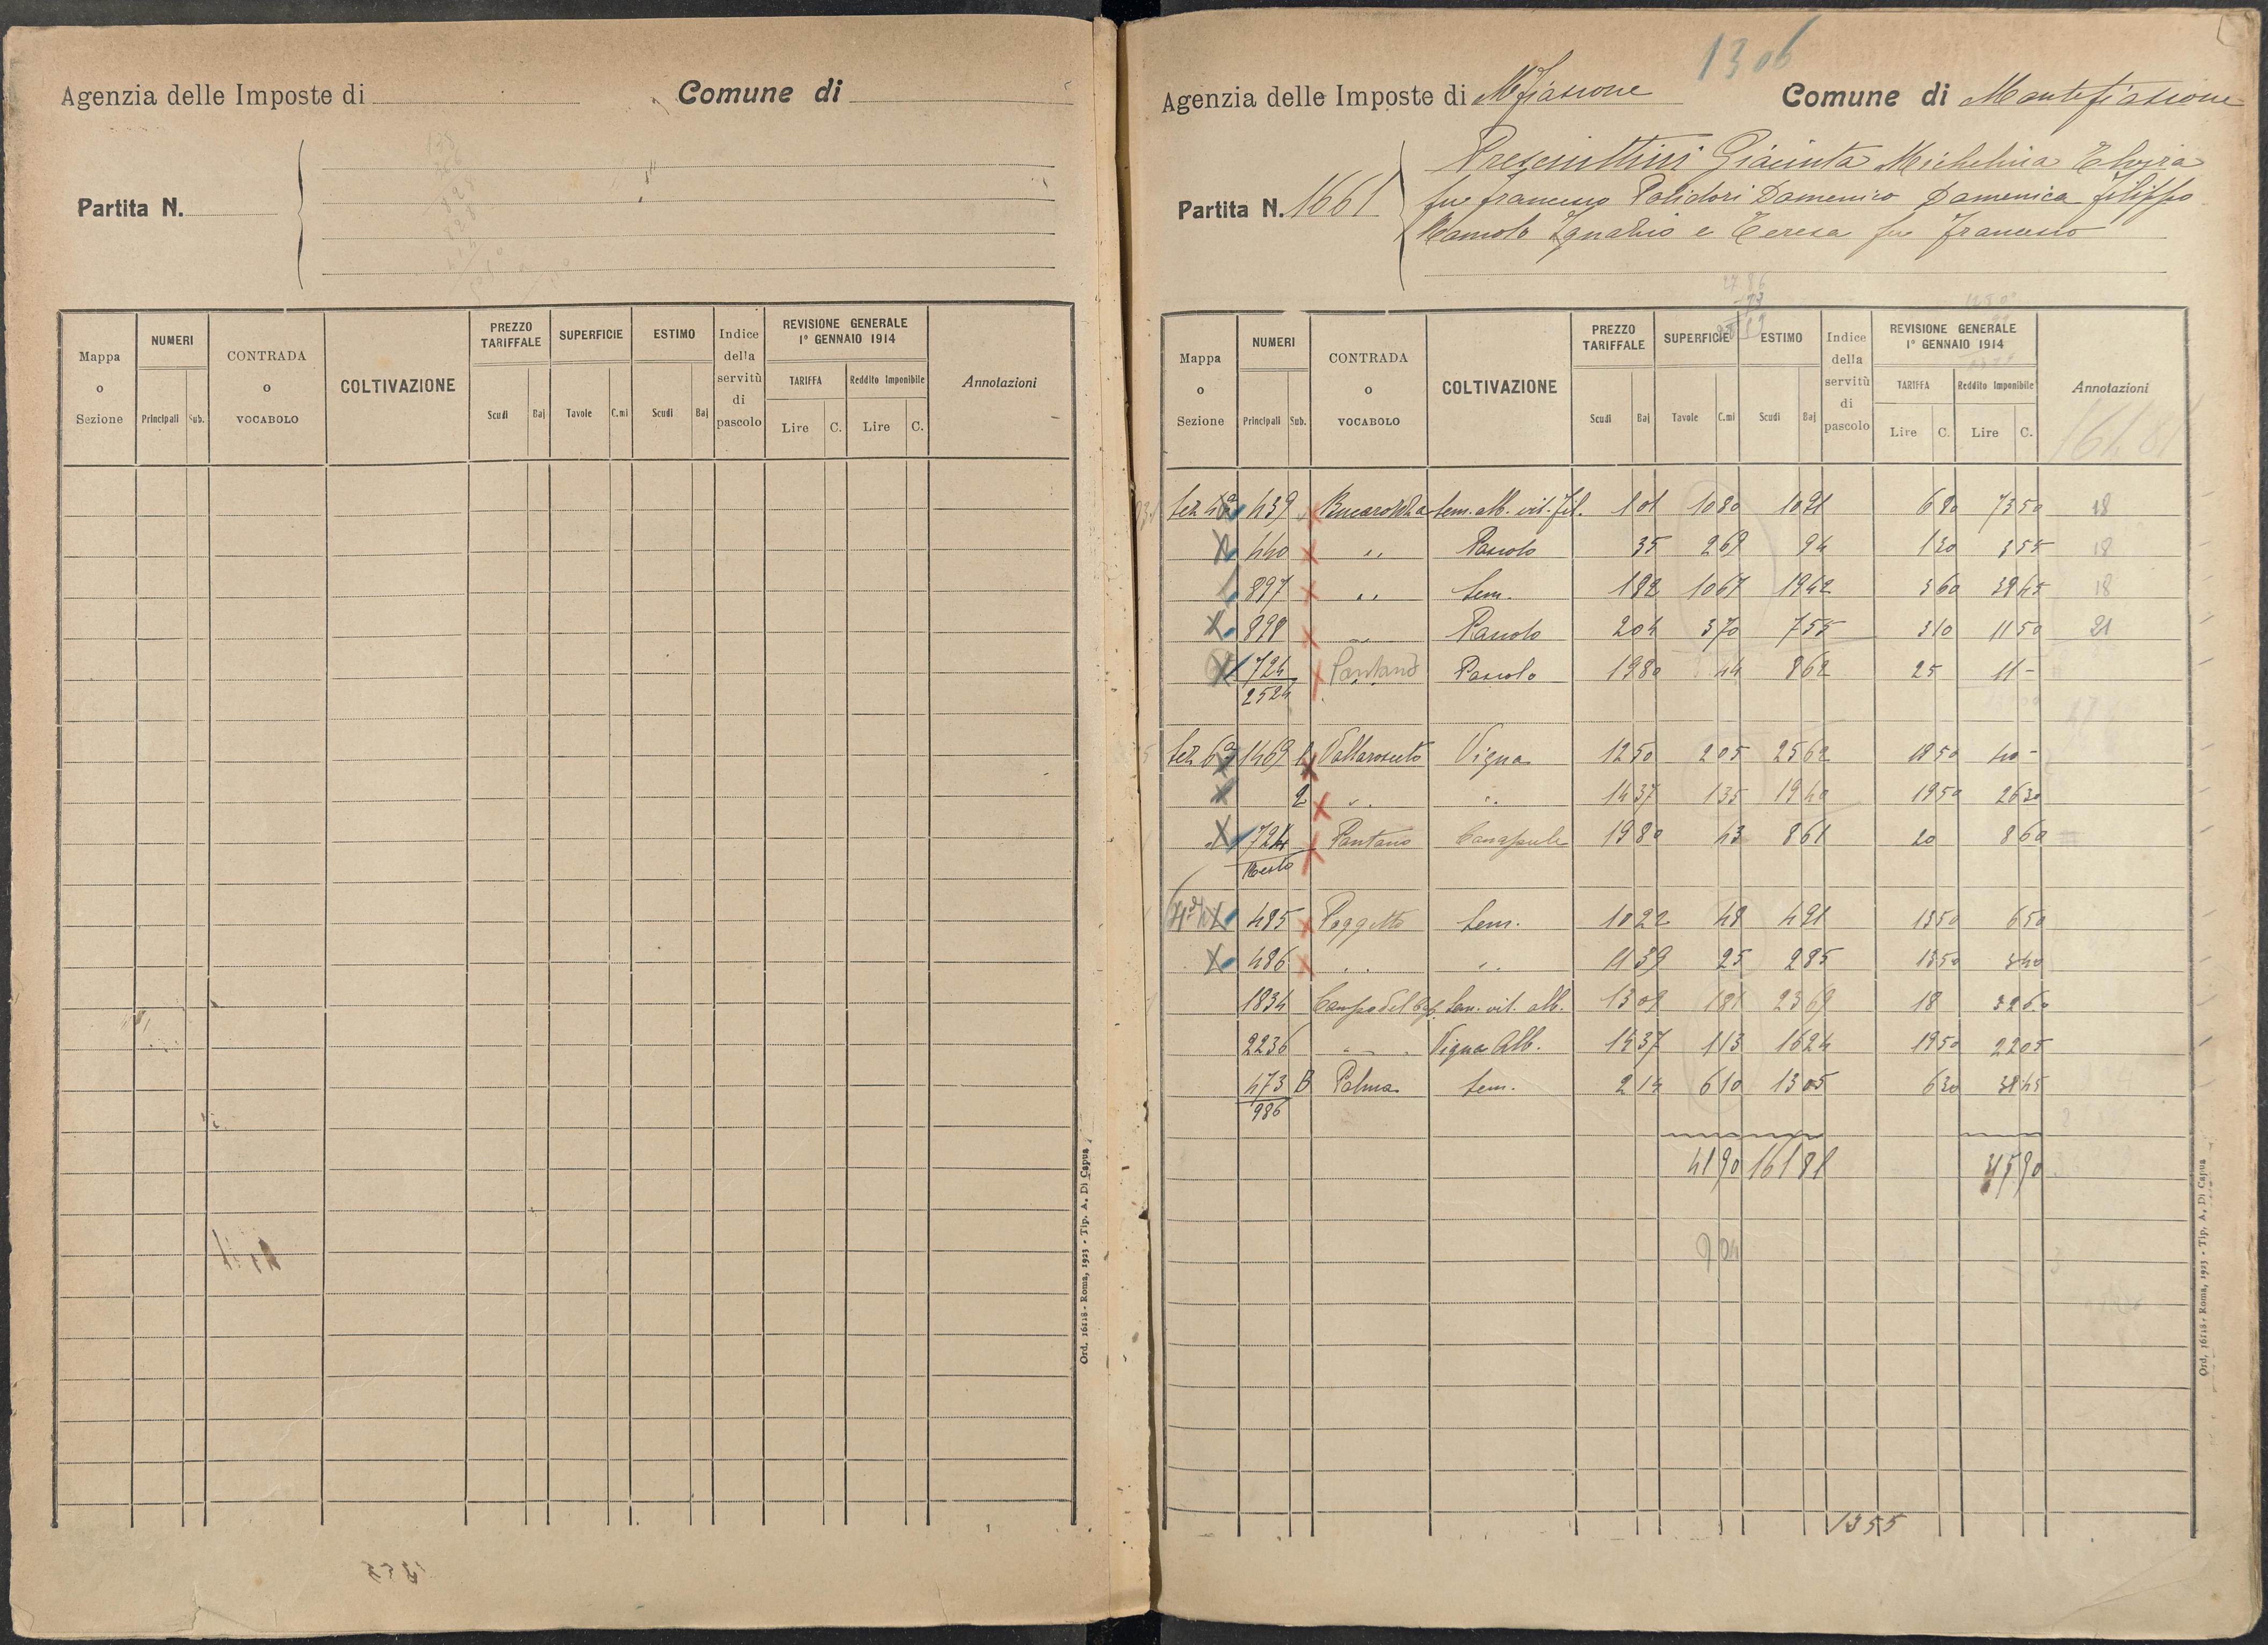 Agenzia delle Imposte di
Comune di
Partita N.
Mappa o Sezione
NUMERI
Principali
Sub.
CONTRADA o VOCABOLO
COLTIVAZIONE
PREZZO TARIFFALE
Scudi Baj
SUPERFICIE
Tavole C.mi
ESTIMO
Scudi Baj
Indice della servitù di pascolo
REVISIONE GENERALE
1° GENNAIO 1914
TARIFFA
Lire C.
Reddito Imponibile
Lire C.
Annotazioni
Ord. 16118 - Roma, 1923 - Tip. A. Di Capua
1306
Agenzia delle Imposte di Mfiascone
Comune di Montefiascone
Partita N. 1661
Presciuttini Giacinta Michelina Elvira
fu Francesco Polidori Domenico Domenica Filippo
Ignazio e Teresa fu Francesco
Mappa o Sezione
NUMERI
Principali
Sub.
CONTRADA o VOCABOLO
COLTIVAZIONE
PREZZO TARIFFALE
Scudi Baj
SUPERFICIE
Tavole C.mi
ESTIMO
Scudi Baj
Indice della servitù di pascolo
REVISIONE GENERALE
1° GENNAIO 1914
TARIFFA
Lire C.
Reddito Imponibile
Lire C.
Annotazioni
1618
Sez 4a 439 sem. alb. vit. fil. 1 01 1080 1091 6 80 73 50 18
440 " Pascolo 35 269 94 1 30 3 55 18
897 " Sem. 1 82 1067 1942 3 60 39 45 18
898 " Pascolo 2 04 370 755 3 10 11 50 21
724/2524 Pantano Pascolo 19 80 44 862 25 11 -
Sez 6a 1469 1 Vigna 12 50 205 2562 19 50 40 -
2 " " 14 37 135 1940 19 50 26 30
724/Resto Pantano Canapule 19 80 43 861 20 8 60
485 Poggetto Sem. 10 22 48 491 13 50 6 50
486 " " 11 39 25 285 13 50 3 40
1834 Sem. vit. alb. 13 09 181 2369 18 32 60
2236 " Vigna Alb. 14 37 113 1624 19 50 22 05
473/986 B Palma Sem. 2 14 610 1305 6 30 38 45
4190 16181
904
1355
Ord. 16118 - Roma, 1923 - Tip. A. Di Capua